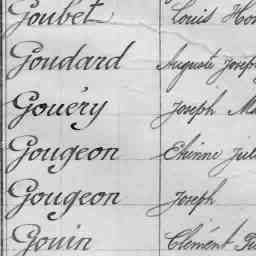 Goubet Louis
Goudard Auguste Joseph
Gouéry Joseph
Gougeon Etienne
Gougeon Joseph
Gouin Clément